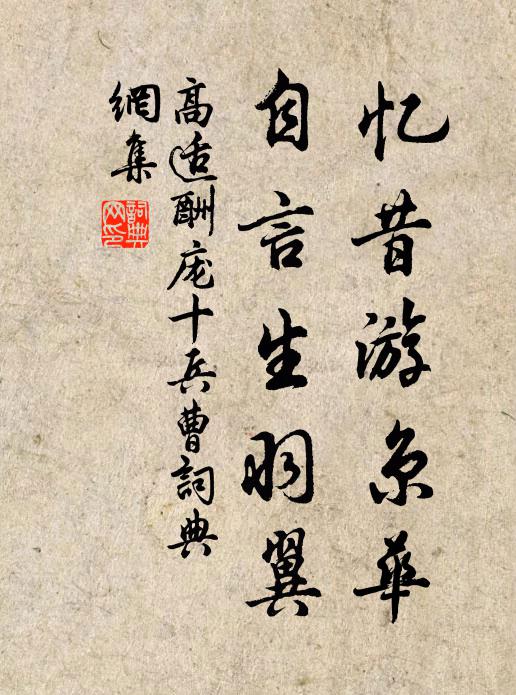 忆昔游京华
自言生羽翼
高适酬庞十兵曹詞典
網集
詞典
网印